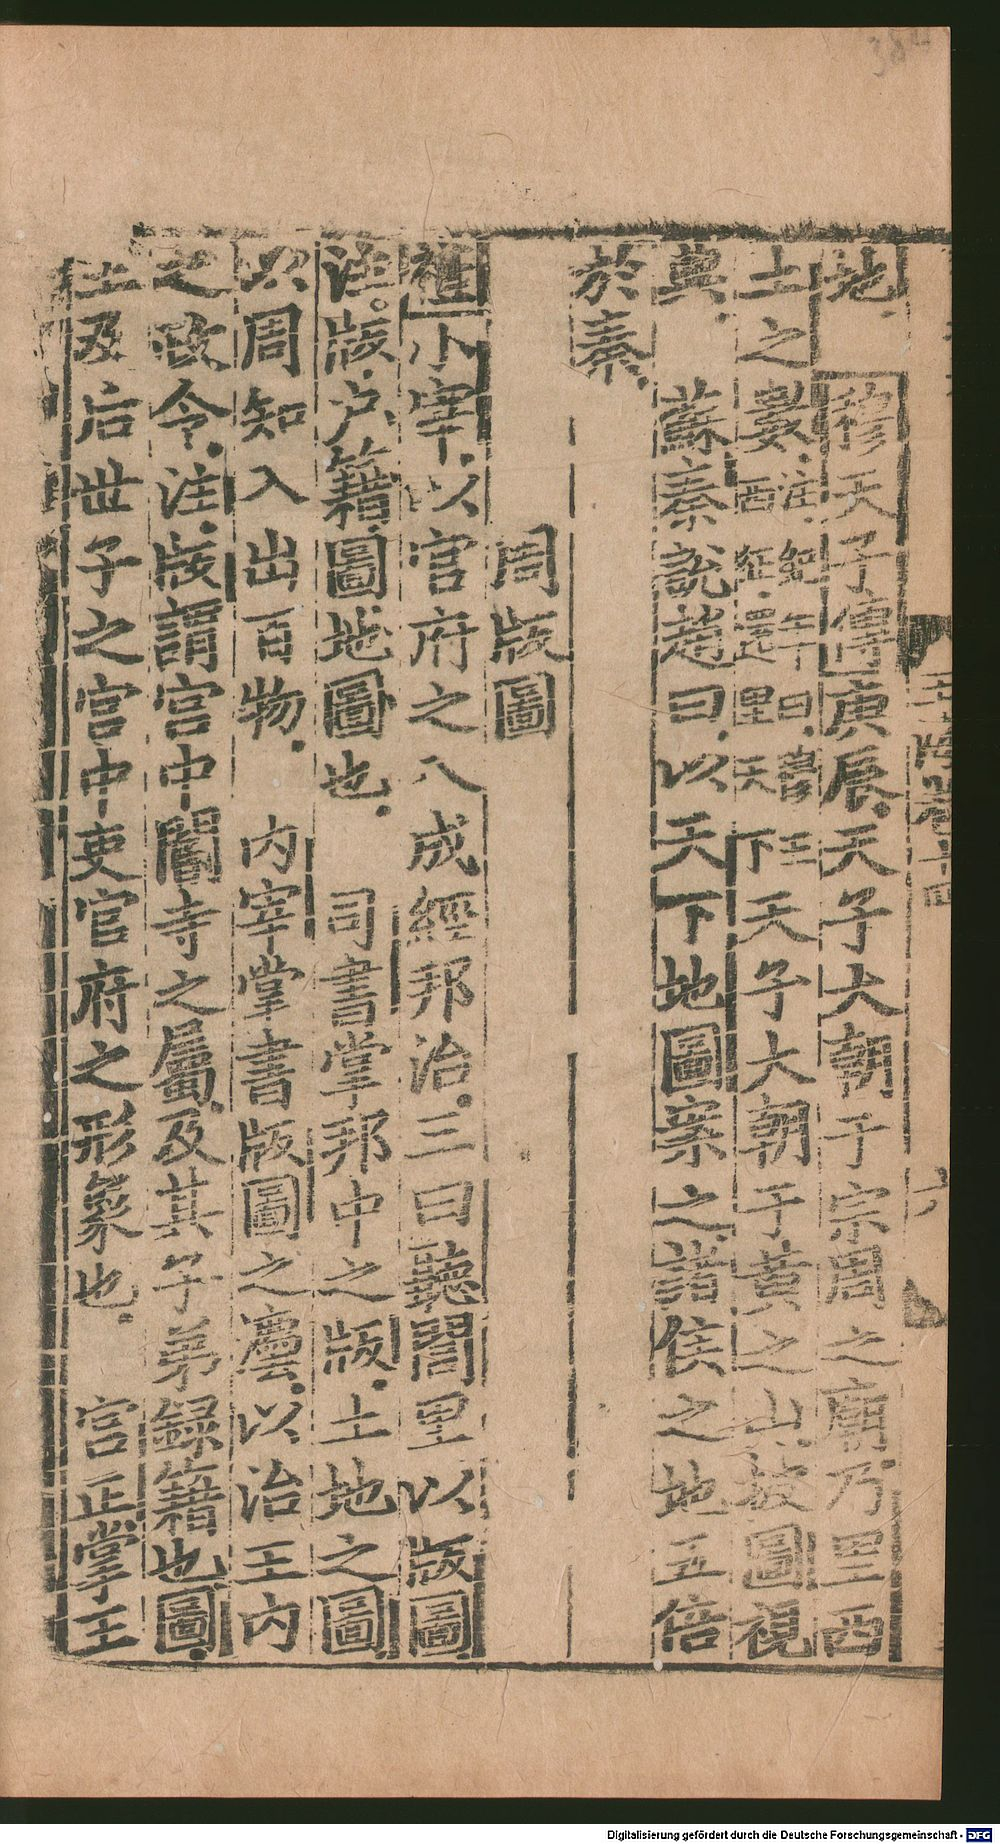 地 穆天子傳庚辰天子大朝于宗周之廟乃里西
土之數注紀年曰穆王西征還里天下天子大朝于黃之山披圖視
典 蘇秦說趙曰以天下地圖案之諸侯之地五倍
於秦
周版圖
禮小宰以官府之八成經邦治三曰聽閭里以版圖
注版戶籍圖地圖也 司書掌邦中之版土地之圖
以周知入出百物 內宰掌書版圖之灋以治王內
之政令注版謂宮中閽寺之屬及其子弟錄籍也圖
王及后世子之宮中吏官府之形象也 宮正掌王
Digitalisierung gefördert durch die Deutsche Forschungsgemeinschaft - DFG